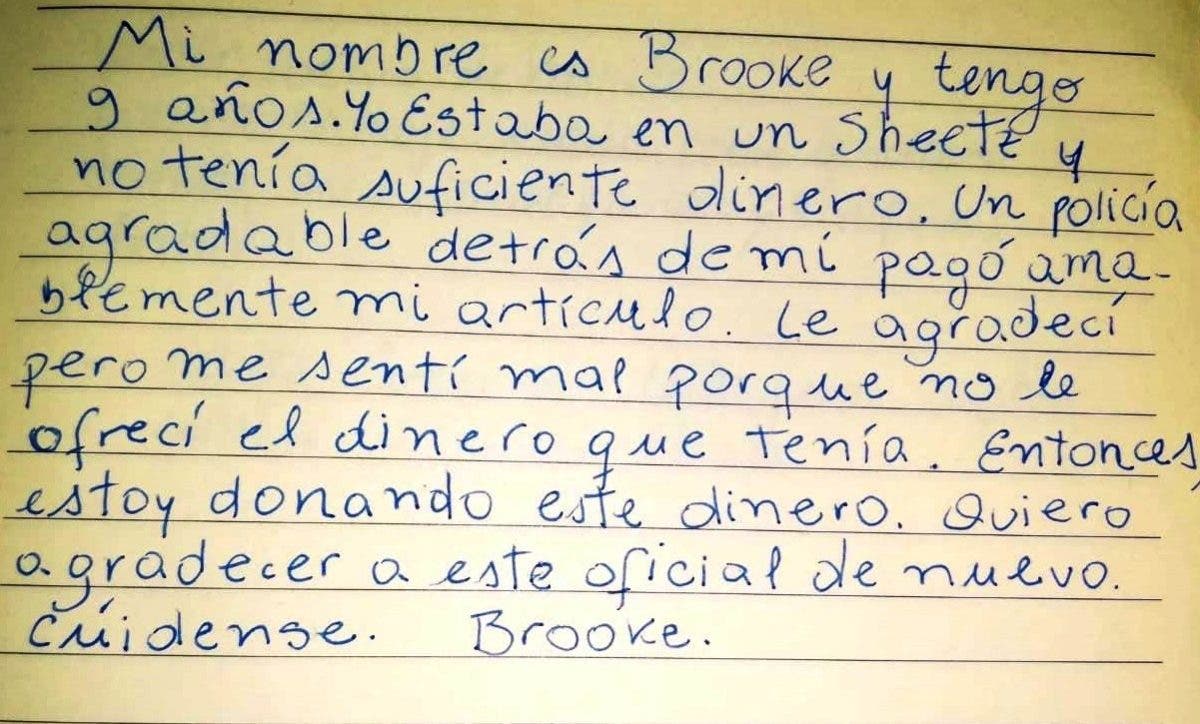 Mi nombre es Brooke y tengo
9 años. Yo Estaba en un Sheetz y
no tenía suficiente dinero. Un policía
agradable detrás de mí pagó ama-
blemente mi artículo. Le agradecí
pero me sentí mal porque no le
ofrecí el dinero que tenía. Entonces,
estoy donando este dinero. Quiero
agradecer a este oficial de nuevo.
Cúidense. Brooke.